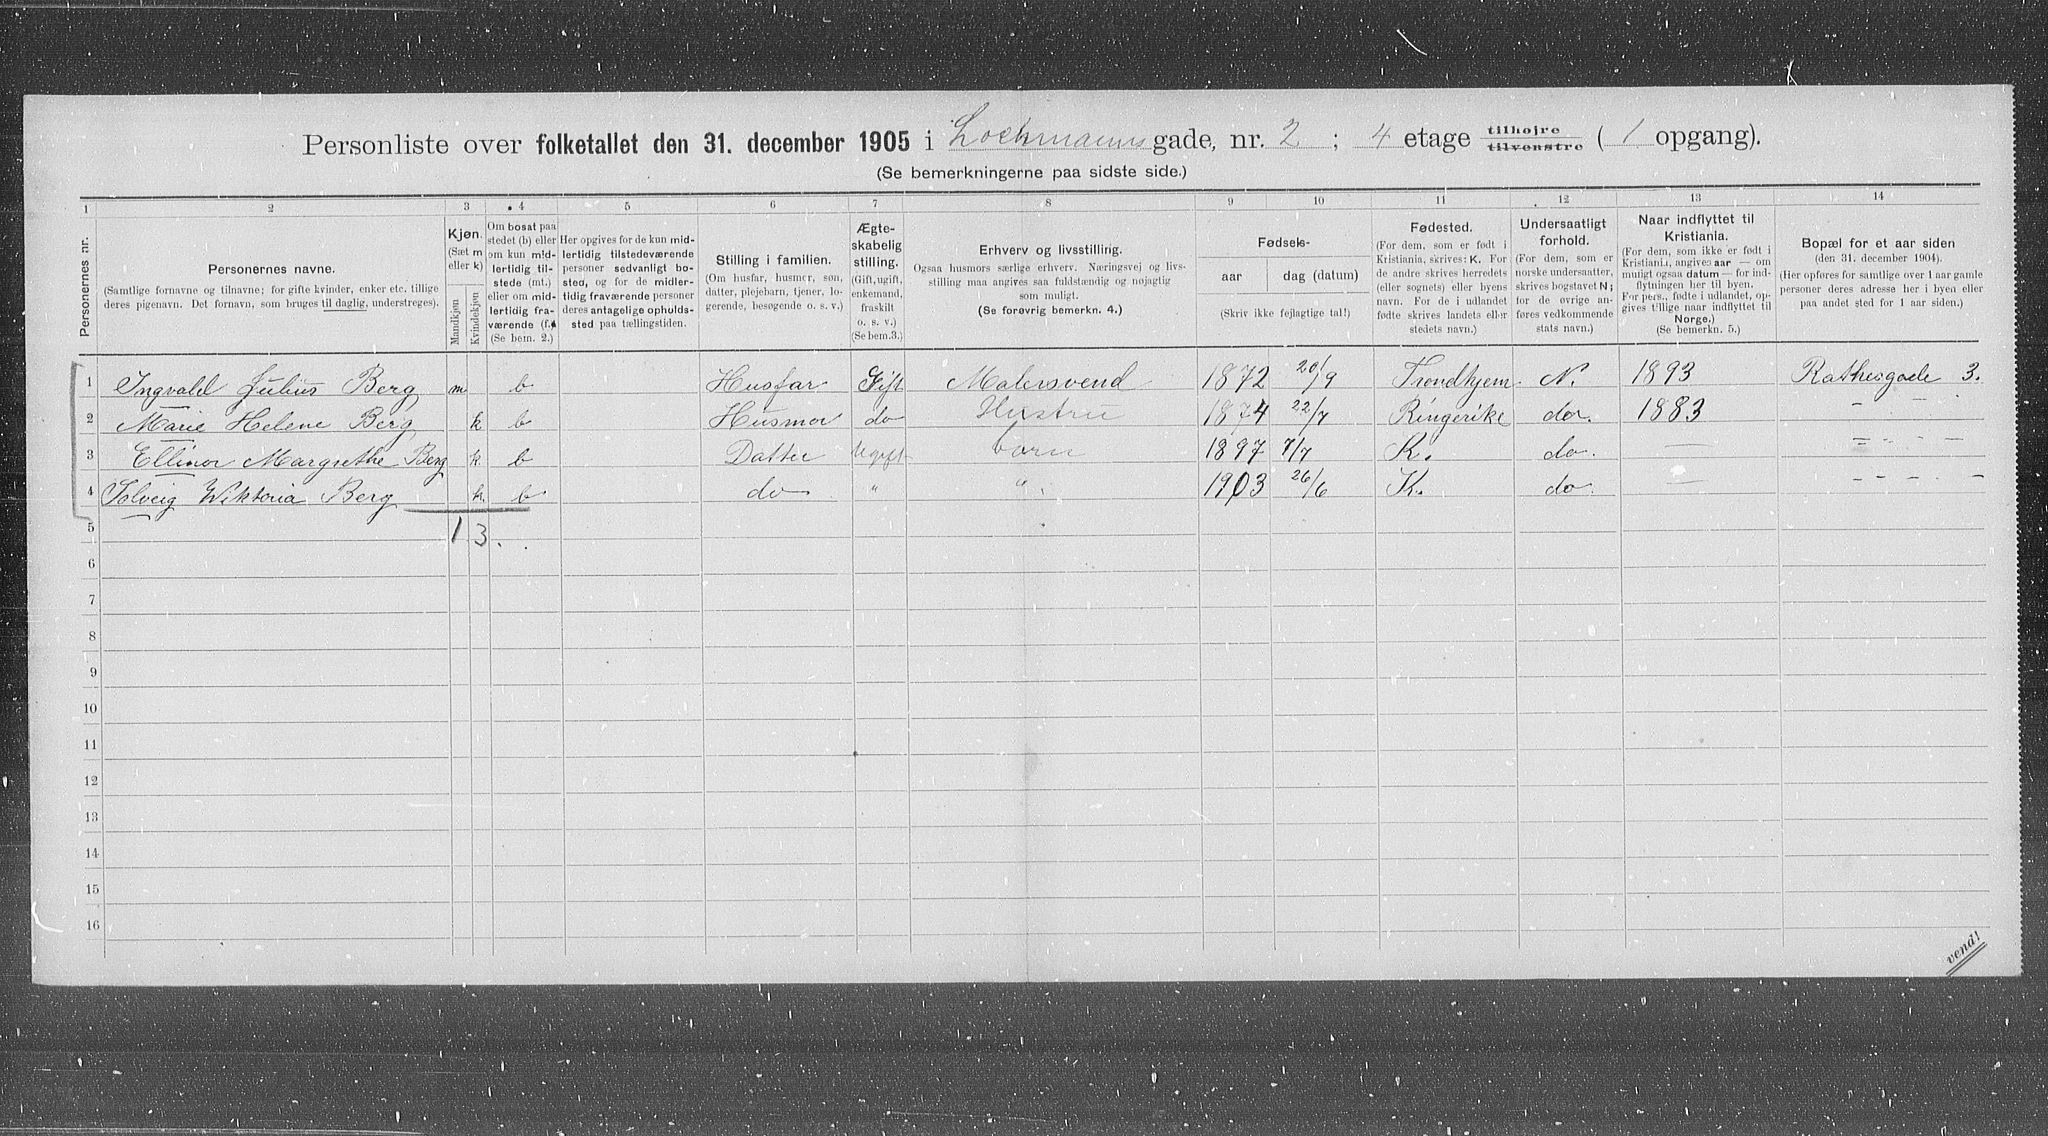 Personliste over folketallet den 31. december 1905 i Lochmannsgade, nr. 2 ; 4 etage tilhøjre tilvenstre ( 1 opgang).
(Se bemerkningerne paa sidste side.)
1 2 3 4 5 6 7 8 9 10 11 12 13 14
Personernes nr.
Personernes navne.
(Samtlige fornavne og tilnavne; for gifte kvinder, enker etc. tillige
deres pigenavn. Det fornavn, som bruges til daglig, understreges).
Kjøn.
(Sæt m
eller k)
Mandkjøn
Kvindekjøn
Om bosat paa
stedet (b) eller
om kun mid-
lertidig til-
stede (mt.)
eller om mid-
lertidig fra-
værende (f.
(Se bem. 2.)
Her opgives for de kun mid-
lertidig tilstedeværende
personer sedvanligt bo-
sted, og for de midler-
tidig fraværende personer
deres antagelige opholds-
sted paa tællingstiden.
Stilling i familien.
(Om husfar, husmor, søn,
datter, plejebarn, tjener, lo-
gerende, besøgende o. s. v.)
Ægte-
skabelig
stilling.
(Gift, ugift,
enkemand,
fraskilt
o. s. v.)
(Se bem.3.)
Erhverv og livsstilling.
Ogsaa husmors særlige erhverv. Næringsvej og livs-
stilling maa angives saa fuldstændig og nøjagtig
som muligt.
(Se forøvrig bemerkn. 4.)
Fødsels-
aar
dag (datum)
(Skriv ikke fejlagtige tal!)
Fødested.
(For dem, som er født i
Kristiania, skrives: K. For
de andre skrives herredets
(eller sognets) eller byens
navn. For de i udlandet
fødte skrives landets eller
stedets navn.)
Undersaatligt
forhold.
(For dem, som er
norske undersaatter,
skrives bogstavet N;
for de øvrige an-
føres vedkommende
stats navn.)
Naar indflyttet til
Kristiania.
(For dem, som ikke er født i
Kristiani., angives aar — om
muligt ogsaa datum — for ind-
flytningen her til byen.
For pers., fødte i udlandet, op-
gives tillige naar indflyttet til
Norge.)
(Se bemerkn. 5.)
Bopæl for et aar siden
(den 31. december 1904).
(Her opføres for samtlige over 1 aar gamle
personer deres adresse her i byen eller
paa andet sted for 1 aar siden.)
1 Ingvald Julius Berg m b Husfar Gift Malersvend 1872 20/9 Trondhjem N. 1893 Rathesgade 3.
2 Marie Helene Berg k b Husmor do Hustru 1874 22/7 Ringerike do. 1883 " " "
3 Ellinor Margrethe Berg k b Datter Ugift barn 1897 7/7 K. do. — " " " "
4 Solveig Wiktoria Berg k. b do " " 1903 26/6 K. do. — " " " "
5 1 3.
6
7
8
9
10
11
12
13
14
15
16
vend!